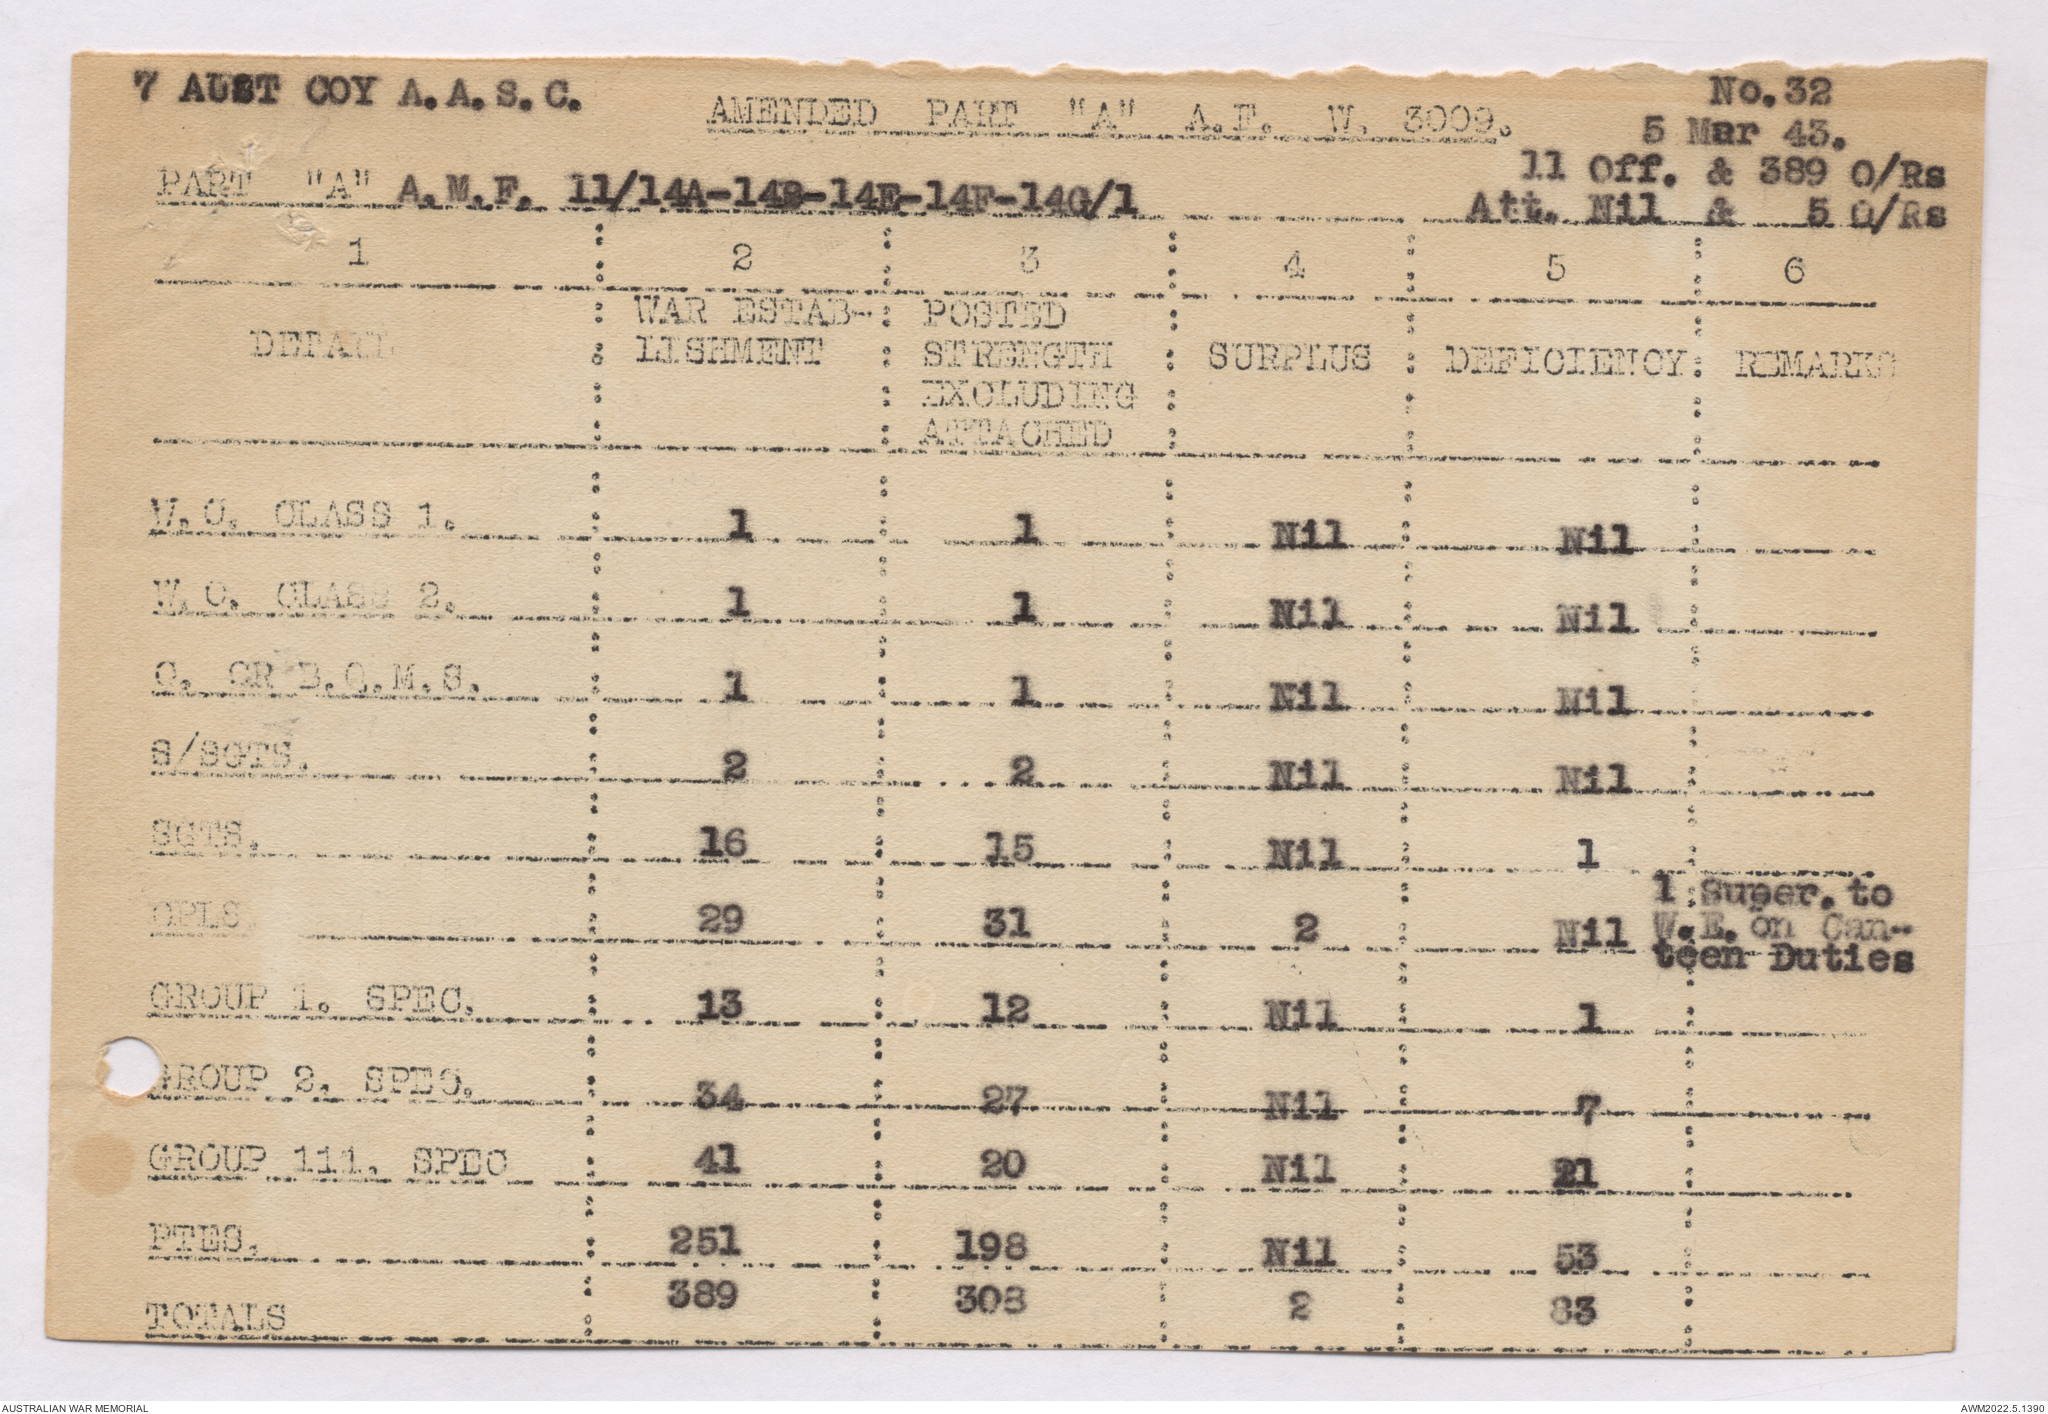 7 AUST COY A.A.S.C.
No.32
AMENDED PART "A" A.F. W. 3009.
5 Mar 43.
11 Off. & 389 O/Rs
PART "A" A.M.F. 11/14A-14B-14E-14F-14G/1
Att. Nil & 5 O/Rs
1 2 3 4 5 6
DETAIL
WAR ESTAB-
LISHMENT
POSTED
STRENGTH
EXCLUDING
ATTACHED
SURPLUS
DEFICIENCY
REMARKS
W.O. CLASS 1. 1 1 Nil Nil
W.O. CLASS 2. 1 1 Nil Nil
C. OR B.Q.M.S. 1 1 Nil Nil
S/SGTS. 2 2 Nil Nil
SGTS. 16 15 Nil 1
CPLS. 29 31 2 Nil
1 Super. to
W.E. on Can-
teen Duties
GROUP 1. SPEC. 13 12 Nil 1
GROUP 2. SPEC. 34 27 Nil 7
GROUP 111. SPEC 41 20 Nil 21
PTES. 251 198 Nil 53
TOTALS 389 308 2 83
AUSTRALIAN WAR MEMORIAL
AWM2022.5.1390